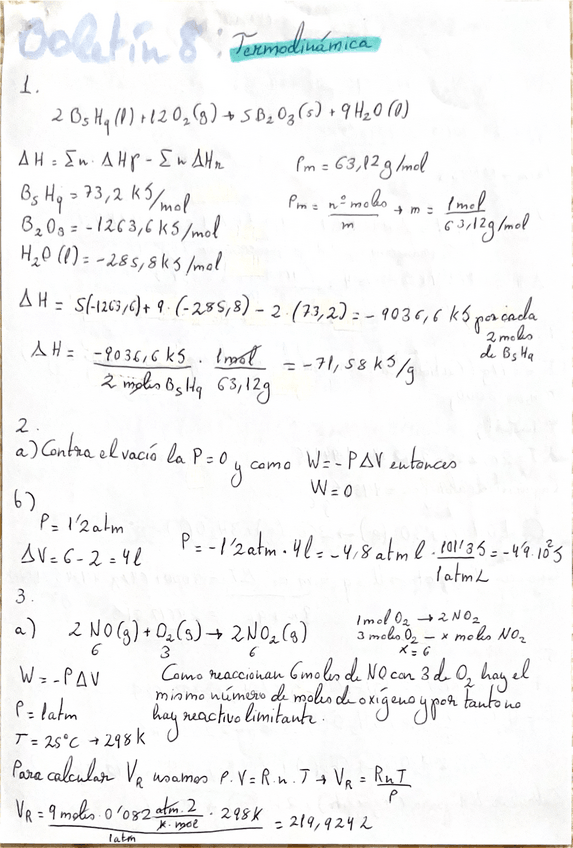 Boletín 8: Termodinámica
1.
2 B₅H₉(l) + 12 O₂(g) → 5 B₂O₃(s) + 9 H₂O(l)
ΔH = Σn · ΔHp - Σn ΔHr
Pm = 63,12 g/mol
B₅H₉ = 73,2 kJ/mol
Pm = nº moles / m → m = 1mol / 63,12 g/mol
B₂O₃ = -1263,6 kJ/mol
H₂O (l) = -285,8 kJ/mol
ΔH = 5(-1263,6) + 9 · (-285,8) - 2 · (73,2) = -9036,6 kJ por cada 2 moles de B₅H₉
ΔH = -9036,6 kJ / 2 moles B₅H₉ · 1mol / 63,12g = -71,58 kJ/g
2.
a) Contra el vació la P=0 y como W=-PΔV entonces
W=0
b)
P = 1'2 atm
ΔV = 6 - 2 = 4l
P = -1'2 atm · 4l = -4,8 atm l · 101'3 J / 1 atm L = -4'9 · 10² J
3.
a) 2 NO(g) + O₂(g) → 2 NO₂(g)
6 3 6
1 mol O₂ → 2 NO₂
3 moles O₂ — x moles NO₂
x = 6
W = -PΔV
P = 1 atm
T = 25°C → 298 K
Como reaccionan 6 moles de NO con 3 de O₂ hay el
mismo número de moles de oxígeno y por tanto no
hay reactivo limitante.
Para calcular V_R usamos P.V = R.n.T → V_R = RnT / P
V_R = 9 moles · 0'082 atm·l / K·mol · 298K / 1 atm = 219,924 L